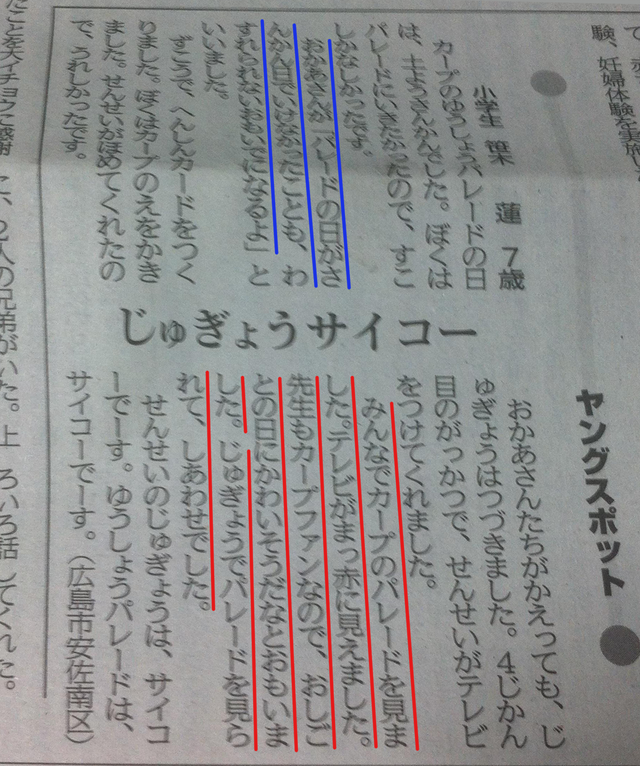 験、妊婦体験を実施
ヤングスポット
じゅぎょうサイコー
小学生 蓮 7歳
カープのゆうしょうパレードの日
は、土ようさんかんでした。ぼくは
パレードにいきたかったので、すこ
しかなしかったです。
おかあさんが「パレードの日がさ
んかん日でいけなかったことも、わ
すれられないおもいでになるよ」と
いいました。
ずこうで、へんしんカードをつく
りました。ぼくはカープのえをかき
ました。せんせいがほめてくれたの
で、うれしかったです。
おかあさんたちがかえっても、じ
ゅぎょうはつづきました。4じかん
目のがっかつで、せんせいがテレビ
をつけてくれました。
みんなでカープのパレードを見ま
した。テレビがまっ赤に見えました。
先生もカープファンなので、おしご
との日にかわいそうだなとおもいま
した。じゅぎょうでパレードを見ら
れて、しあわせでした。
せんせいのじゅぎょうは、サイコ
ーでーす。ゆうしょうパレードは、
サイコーでーす。(広島市安佐南区)
人の兄弟がいた。上
ろいろ話してくれた。
たことを大イチョウに感謝